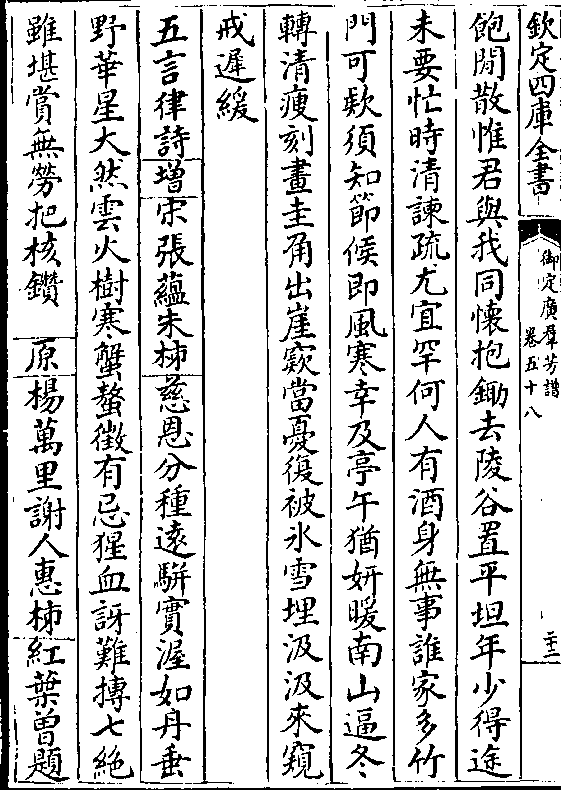 欽定四庫全書
御定廣羣芳譜
卷五十八
三十二
飽閒散惟君與我同懷抱鋤去陵谷置平坦年少得途
未要忙時清諫疏尤宜罕何人有酒身無事誰家多竹
門可欵須知節候即風寒幸及亭午猶妍暖南山逼冬
轉清瘦刻畫圭角出崖窾當憂復被氷雪埋汲汲來窺
戒遲緩
五言律詩增宋張蘊朱柹慈恩分種遠駢實渥如丹垂
野華星大然雲火樹寒蟹螯徵有忌猩血訝難摶七絕
雖堪賞無勞把核鑽　原楊萬里謝人惠柹紅葉曽題